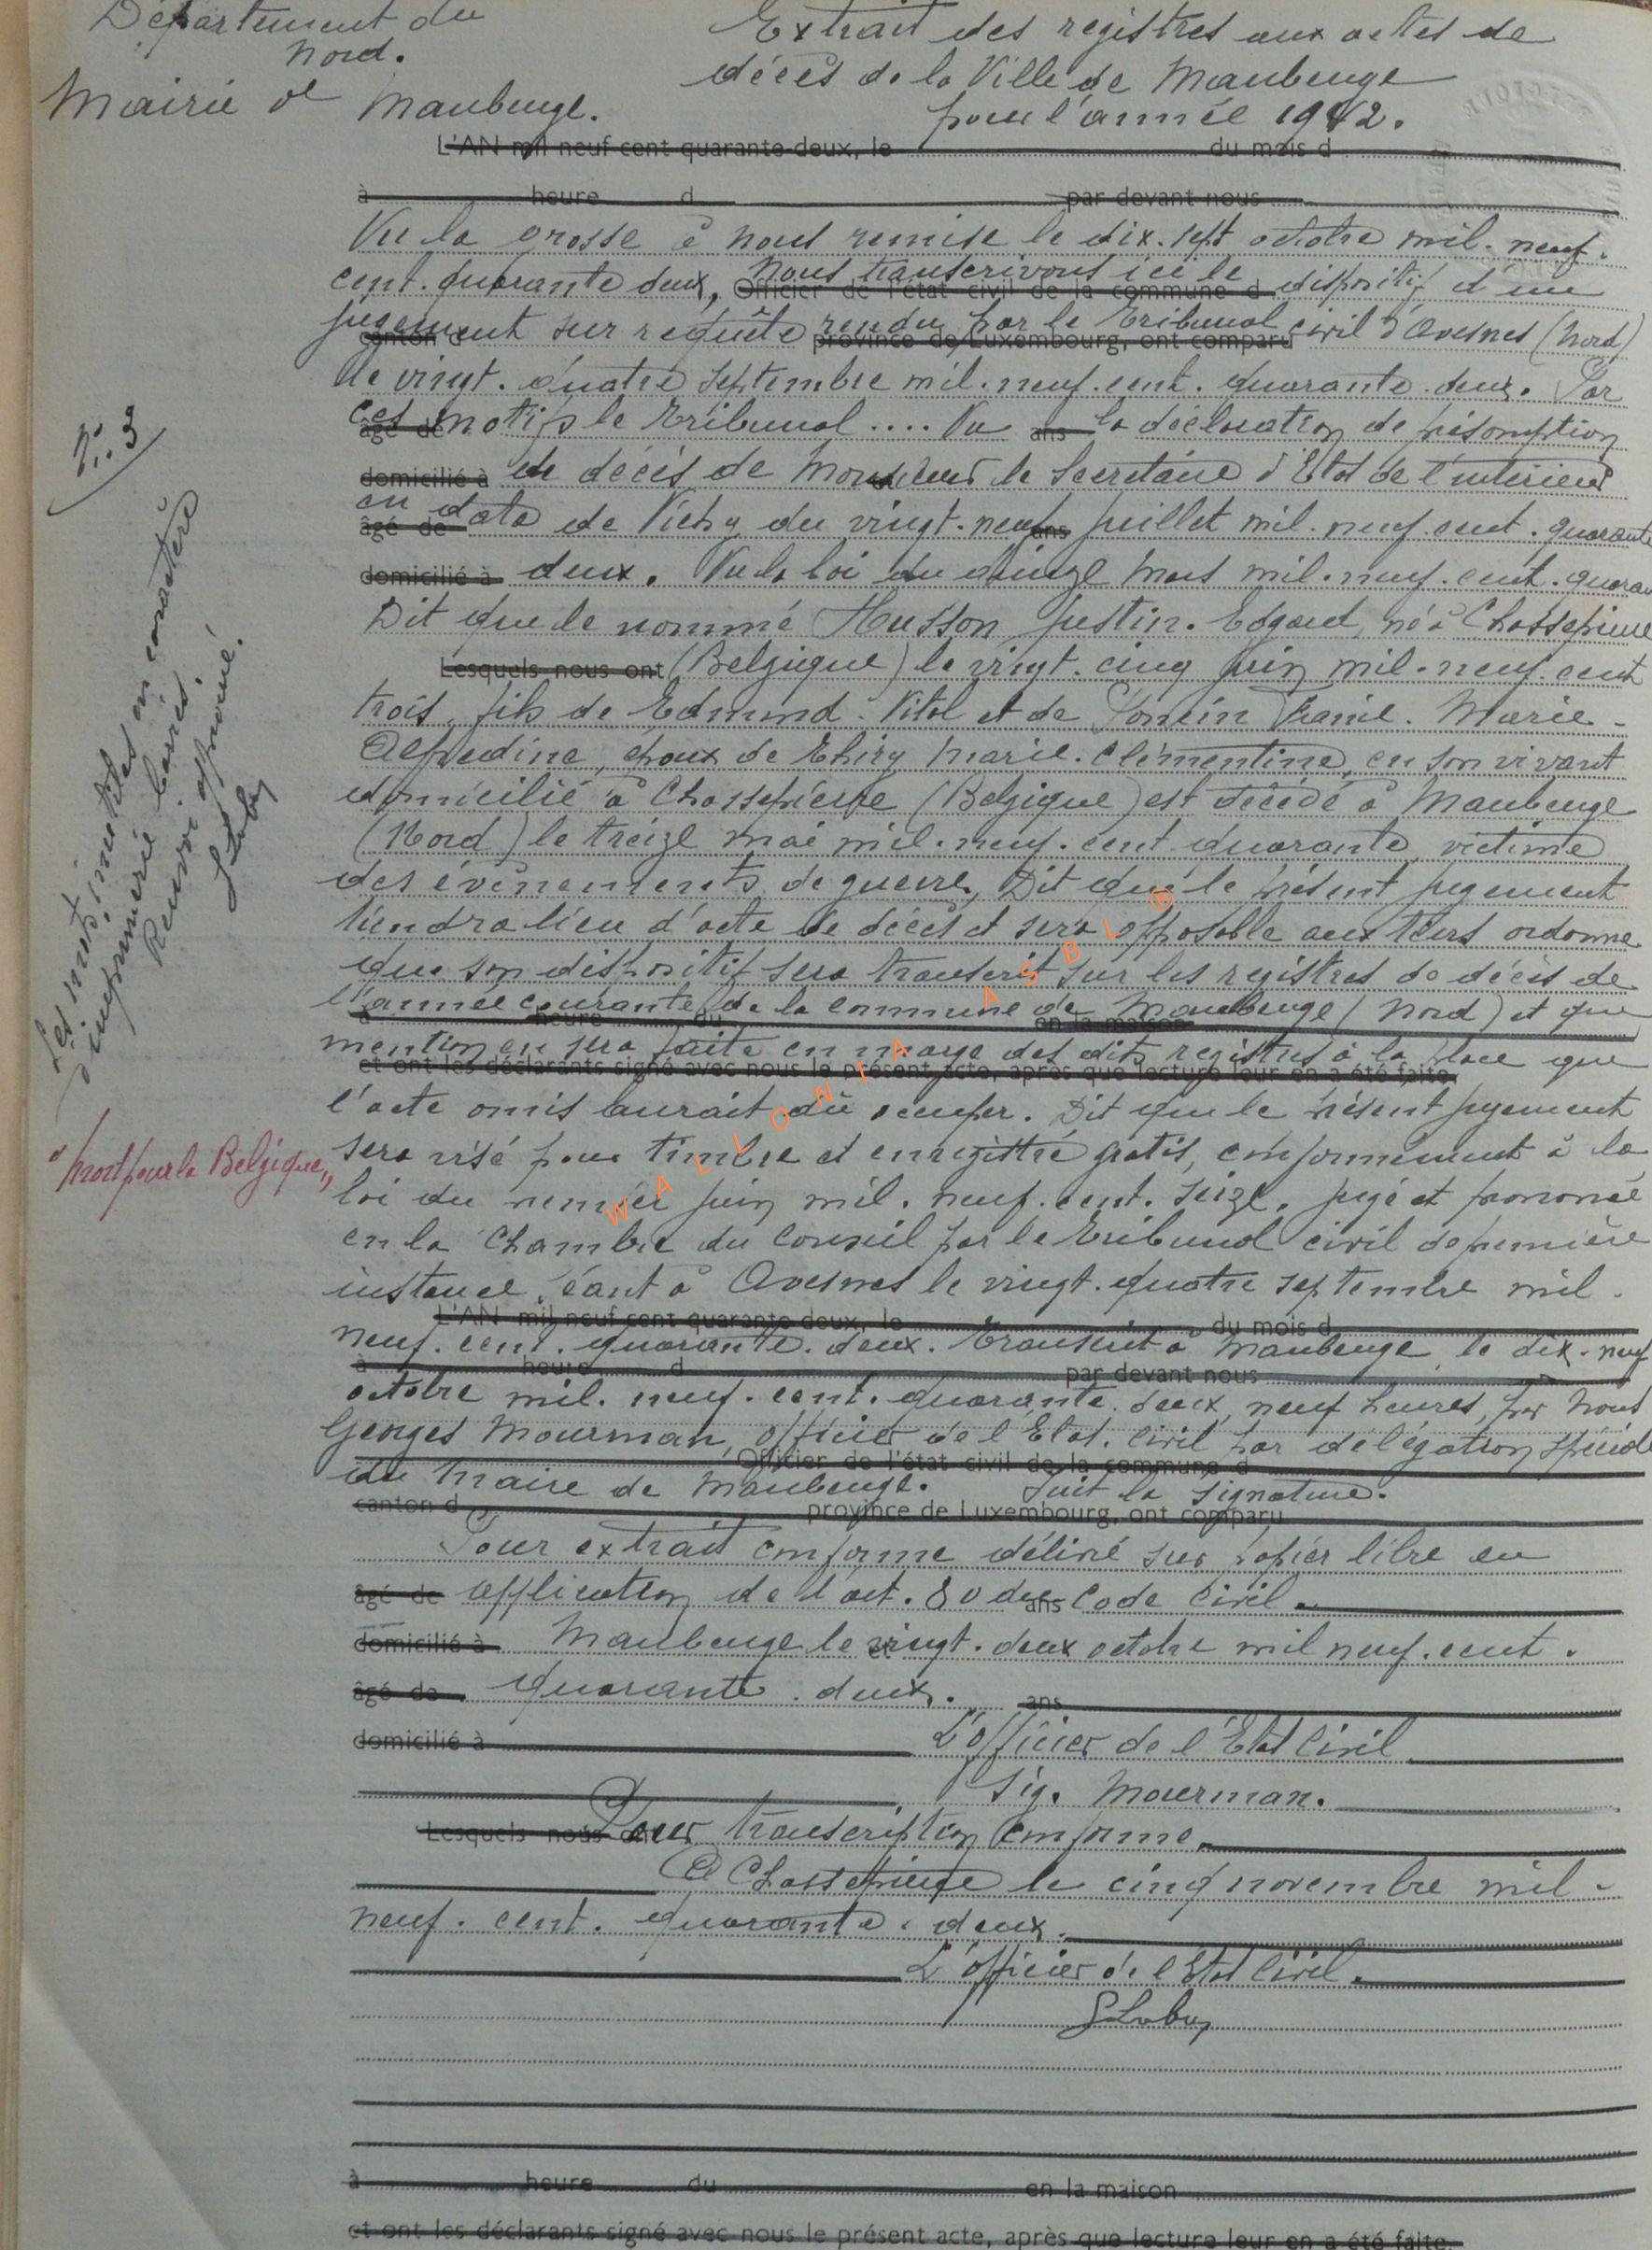 Département du
Nord.
Mairie de Maubeuge.
Extrait des registres aux actes de
décès de la Ville de Maubeuge
pour l'année 1942.
L'AN mil neuf cent quarante-deux, le du mois d
à heure d par devant nous
Vu la grosse à nous remise le dix-sept octobre mil-neuf-
cent-quarante deux, nous transcrivons ici le dispositif d'un
Officier de l'état civil de la commune d
jugement sur requête rendu par le Tribunal civil d'Avesnes (Nord)
canton d province de Luxembourg, ont comparu
le vingt-quatre septembre mil-neuf-cent-quarante-deux. Par
ces motifs le Tribunal .... Vu la déclaration de présomption
âgé de ans
domicilié à de décès de Monsieur le Secrétaire d'Etat de l'intérieur
en date de Vichy du vingt-neuf juillet mil-neuf-cent-quarante
âgé de ans
domicilié à deux. Vu la loi du quinze mars mil-neuf-cent-quaran
Dit que le nommé Husson Justin-Edgard, né à Chassepierre
Lesquels nous ont (Belgique) le vingt-cinq juin mil-neuf-cent
trois, fils de Edmond-Vital et de Poncin Marie-
Alphedine, époux de Thiry Marie-Clémentine, en son vivant
domicilié à Chassepierre (Belgique) est décédé à Maubeuge
(Nord) le treize mai mil-neuf-cent quarante, victime
des évènements de guerre, Dit que le présent jugement
tiendra lieu d'acte de décès et sera opposable aux tiers ordonne
que son dispositif sera transcrit sur les registres de décès de
l'année courante de la commune de Maubeuge (Nord) et que
à heure du en la maison
mention en sera faite en marge des dits registres à la place que
et ont les déclarants signé avec nous le présent acte, après que lecture leur en a été faite.
l'acte omis aurait dû occuper. Dit que le présent jugement
sera visé pour timbre et enregistré gratis, conformément à la
loi du premier juin mil-neuf-cent-seize. jugé et prononcé
en la Chambre du Conseil par le Tribunal civil de première
instance séant à Avesnes le vingt-quatre septembre mil-
L'AN mil neuf cent quarante-deux, le du mois d
neuf-cent-quarante-deux. Transcrit à Maubeuge, le dix-neuf
à heure d par devant nous
octobre mil-neuf-cent-quarante-deux, neuf heures, par Nous
Georges Mourman, officier de l'Etat-Civil par délégation spéciale
Officier de l'état civil de la commune d
du Maire de Maubeuge. Suit la signature.
canton d province de Luxembourg, ont comparu
Pour extrait conforme délivré sur papier libre en
âgé de application de l'art. 80 du Code Civil.
ans
domicilié à Maubeuge le vingt-deux octobre mil neuf-cent-
et
âgé de quarante-deux. ans
domicilié à L'officier de l'Etat Civil
Sig. Mourman.
Lesquels nous ont Pour transcription conforme.
A Chassepierre le cinq novembre mil-
neuf-cent-quarante-deux.
L'officier de l'Etat Civil.
à heure du en la maison
et ont les déclarants signé avec nous le présent acte, après que lecture leur en a été faite.
N: 3
Les mots inutiles en caractère
d'imprimerie barrés.
Renvoi approuvé.
"Mort pour la Belgique"
WALLONIA ASBL ®